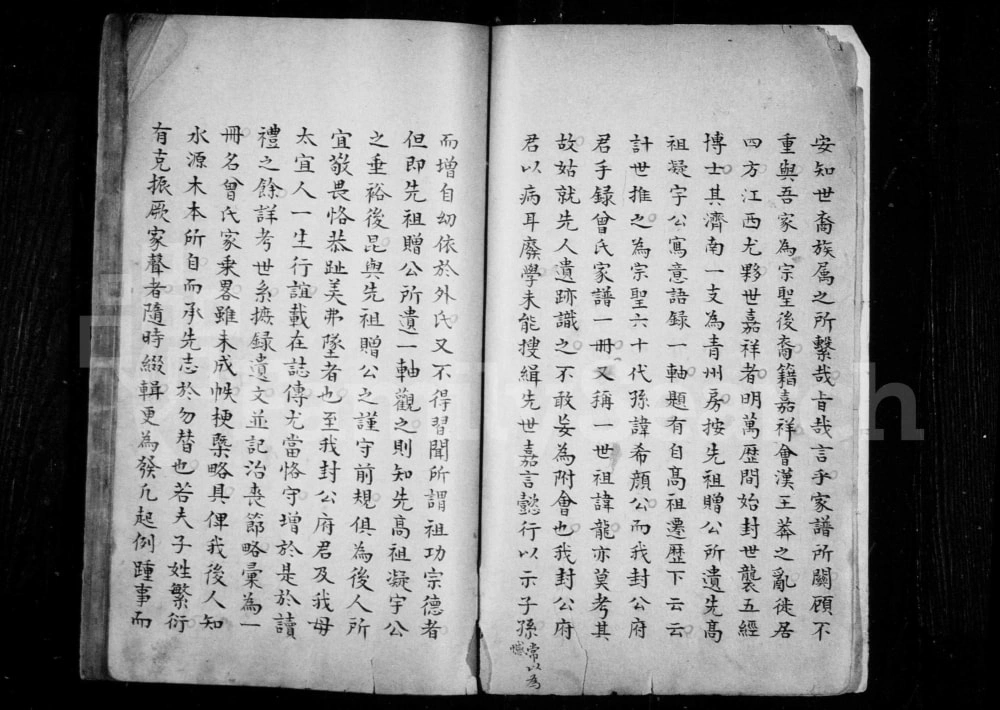 安知世裔族属之所繫哉旨哉言乎家譜所關顧不
重與吾家為宗聖後裔籍嘉祥會漢王莽之亂徙居
四方江西尤夥世嘉祥者明萬歷間始封世襲五經
博士其濟南一支為青州房按先祖贈公所遺先高
祖凝宇公寓意語録一軸題有自高祖遷歷下云云
計世推之為宗聖六十代孫諱希顔公而我封公府
君手録曾氏家譜一冊又稱一世祖諱龍亦莫考其
故姑就先人遺跡識之不敢妄為附會也我封公府
君以病耳廢學未能搜緝先世嘉言懿行以示子孫常以為憾
而增自幼依於外氏又不得習聞所謂祖功宗德者
但即先祖贈公所遺一軸觀之則知先高祖凝宇公
之垂裕後昆與先祖贈公之謹守前規俱為後人所
宜敬畏恪恭趾美弗墜者也至我封公府君及我母
太宜人一生行誼載在誌傳尤當恪守增於是於讀
禮之餘詳考世系摭録遺文並記治喪節略彙為一
冊名曾氏家乘畧雖未成帙梗槩略具俾我後人知
水源木本所自而承先志於勿替也若夫子姓繁衍
有克振厥家聲者隨時綴輯更為發凡起例踵事而